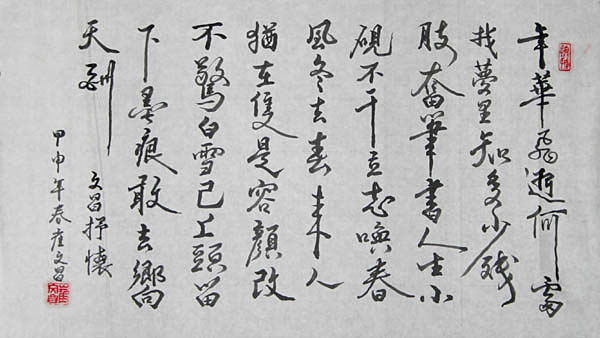 年華飛逝何需
找夢里知多少殘
肢奮筆書人生小
硯不干立志喚春
風冬去春來人
猶在隻是容顏改
不驚白雪已上頭留
下墨痕敢去嚮
天酬
文昌抒懷
甲申年春崔文昌